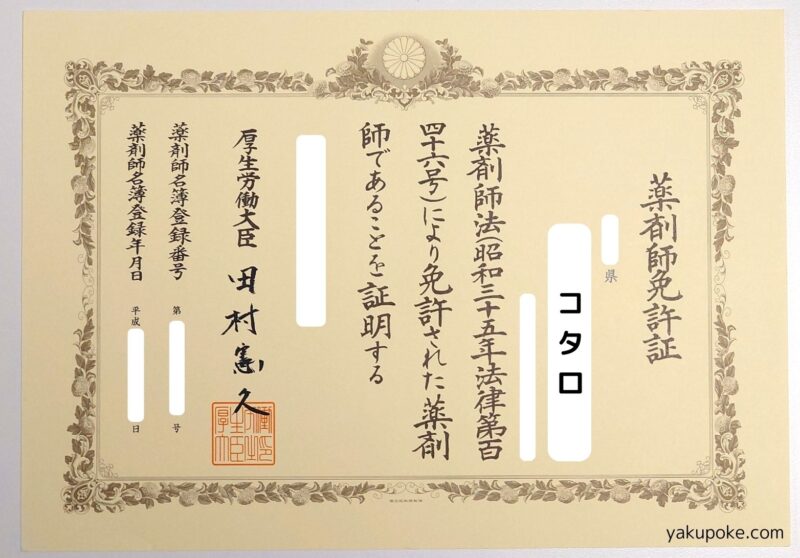 薬剤師免許証
県
コタロ
薬剤師法(昭和三十五年法律第百
四十六号)により免許された薬剤
師であることを証明する
厚生労働大臣 田村憲久
薬剤師名簿登録番号 第 号
薬剤師名簿登録年月日 平成 日
yakupoke.com